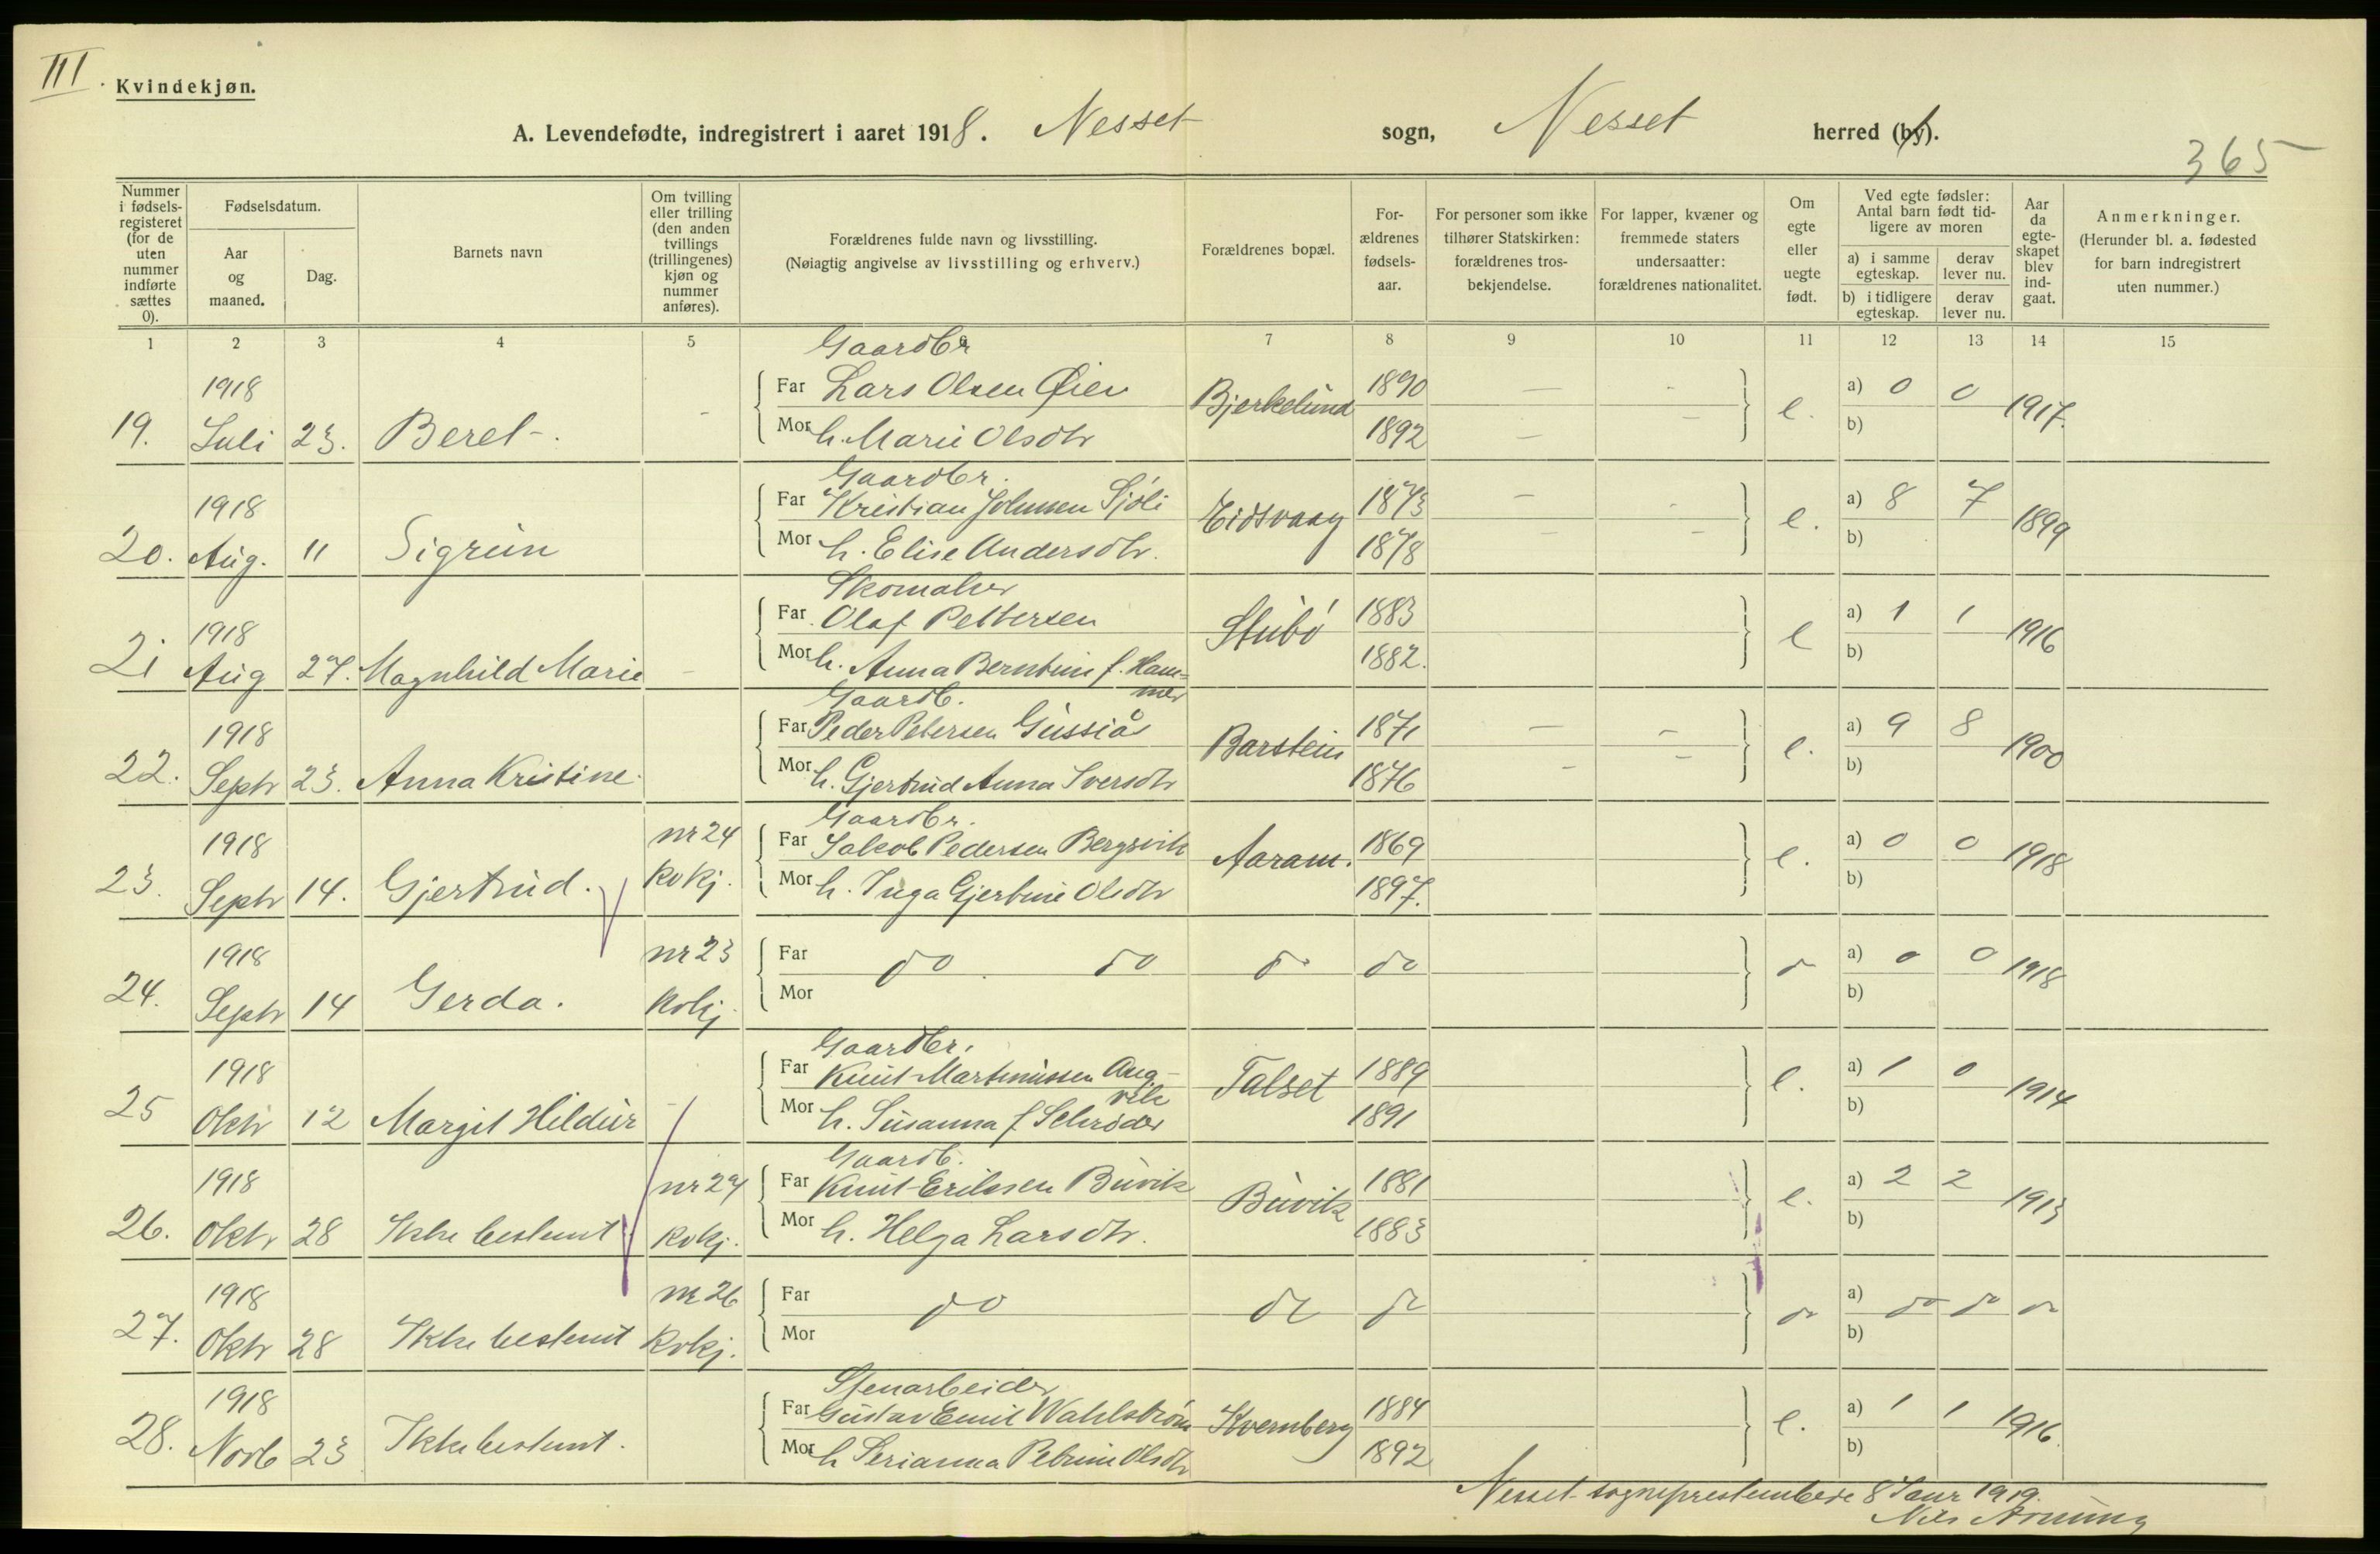 III
Kvindekjøn.
A. Levendefødte, indregistrert i aaret 1918. Nesset sogn, Nesset herred (by).
365
Nummer i fødsels-registeret (for de uten nummer indførte sættes 0).
Fødselsdatum.
Aar og maaned.
Dag.
Barnets navn
Om tvilling eller trilling (den anden tvillings (trillingenes) kjøn og nummer anføres).
Forældrenes fulde navn og livsstilling.
(Nøiagtig angivelse av livsstilling og erhverv.)
Forældrenes bopæl.
For-ældrenes fødsels-aar.
For personer som ikke tilhører Statskirken: forældrenes tros-bekjendelse.
For lapper, kvæner og fremmede staters undersaatter: forældrenes nationalitet.
Om egte eller uegte født.
Ved egte fødsler: Antal barn født tid-ligere av moren
a) i samme egteskap. derav lever nu.
b) i tidligere egteskap. derav lever nu.
Aar da egte-skapet blev ind-gaat.
Anmerkninger.
(Herunder bl. a. fødested for barn indregistrert uten nummer.)
1 2 3 4 5 6 7 8 9 10 11 12 13 14 15
Gaardbr
1918 Far Lars Olsen Øien Bjerkelund 1890 — - a) 0 0
19. Juli 23. Beret -. - Mor h. Marie Olsdtr 1892 — — e. b) 1917.
Gaardbr.
1918 Far Kristian Johnsen Sjøli Eidsvaag 1873 — - a) 8 7
20. Aug. 11 Sigrun Mor h. Elise Andersdtr. 1878 - - e. b) 1899
Skomaker
1918 Far Olaf Pettersen Stubø 1883 a) 1 1
21 Aug 27. Magnhild Marie - Mor h. Anna Berntine f. Ham=mer 1882. e b) 1916
Gaardb.
1918 Far Peder Petersen Gussiås Barstein 1871 — - a) 9 8
22. Septr 23. Anna Kristine. Mor h. Gjertrud Anna Iversdtr 1876 - - e. b) 1900
Gaardbr.
1918 nr 24 Far Jakob Pedersen Bergsvik Aaram. 1869 a) 0 0
23. Septr 14. Gjertrud. kvkj. Mor h. Inga Gjertine Olsdtr 1897. e. b) 1918
1918 nr 23 Far do. do do do do a) 0 0
24. Septr 14 Gerda. kvkj Mor b) 1918
Gaardbr.
1918 Far Knut Martinussen Aug-vik Talset 1889 a) 1 0
25 Oktr 12 Margit Hildur - Mor h. Susanna f Schrøder 1891 e. b) 1914
Gaardb.
1918 nr 27 Far Knut Eriksen Buvik Buvik 1881 a) 2 2
26. Oktr 28 Ikke bestemt kvkj. Mor h. Helga Larsdtr. 1883 e. b) 1913
1918 nr 26 Far do do do do a) do do do
27. Oktr 28 Ikke bestemt kvkj. Mor b)
Stenarbeider
1918 Far Gustav Emil Wahlstrøm Kvernberg 1884 a) 1 1
28. Novb 23 Ikke bestemt. Mor h Serianna Petrine Olsdtr 1892 e. b) 1916.
Nesset sogneprestembede 8 Janr 1919.
Nils